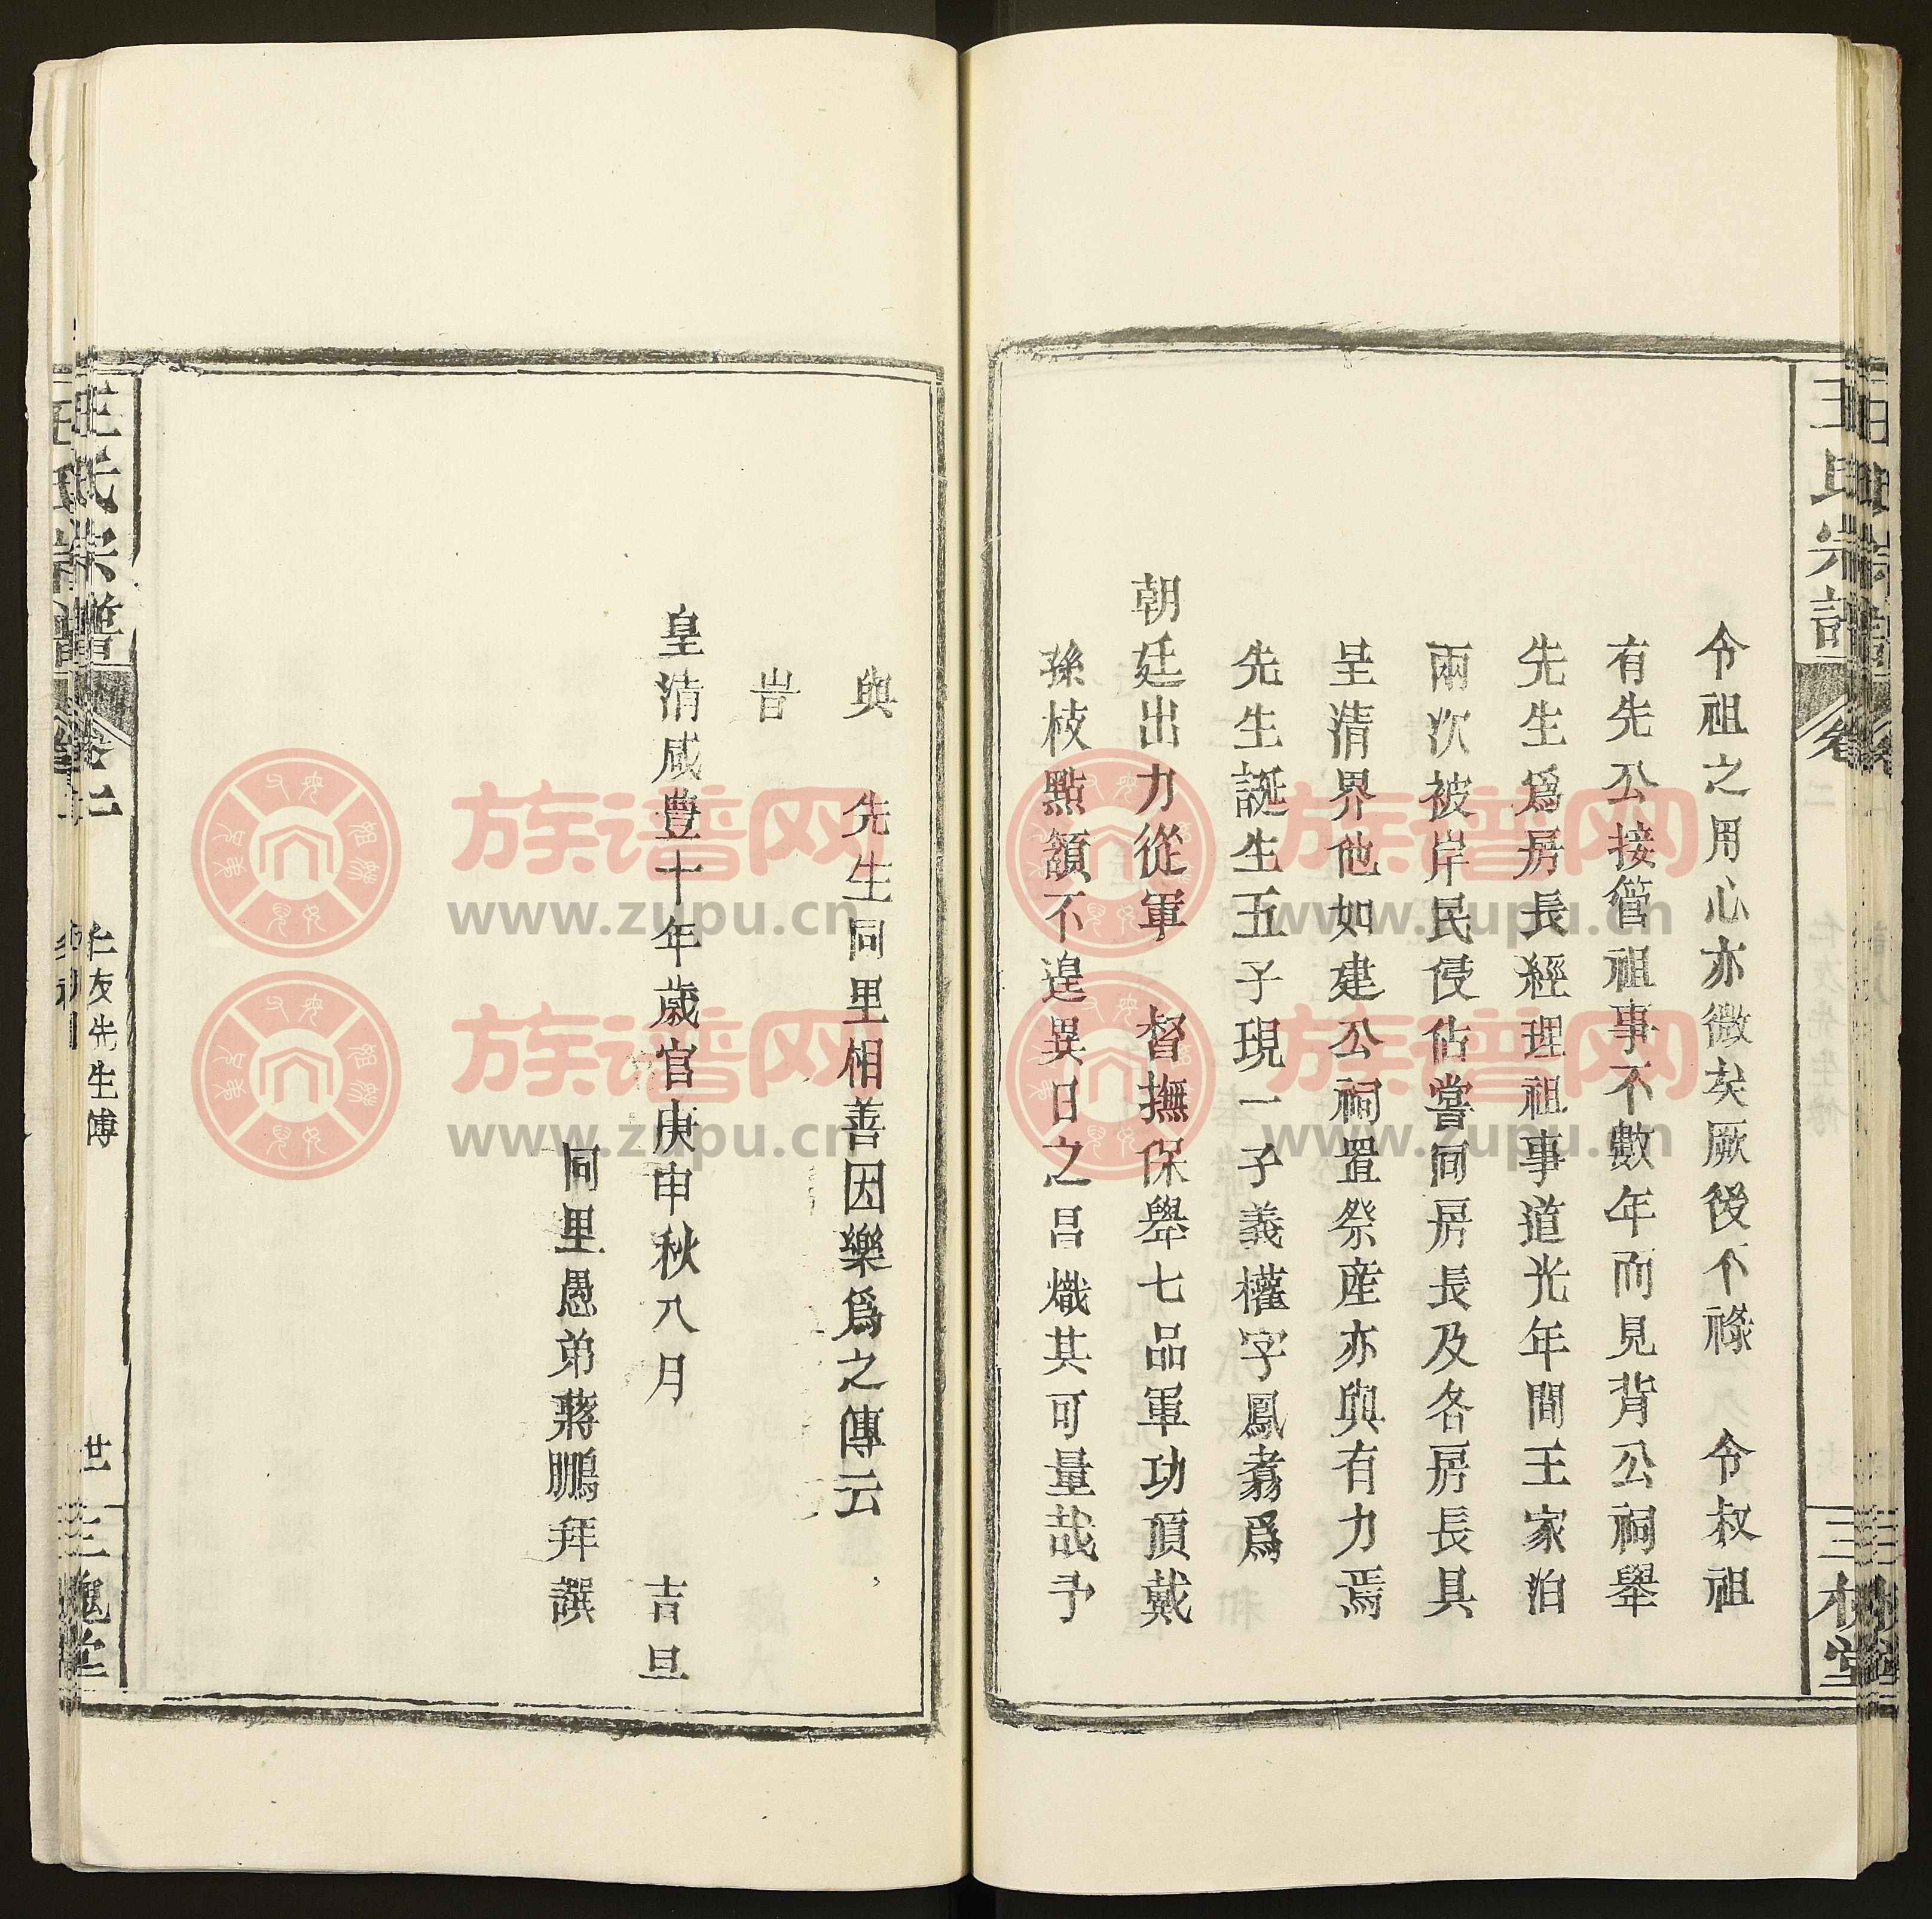 令祖之用心亦微矣厥後不祿　令叔祖
有先公接管祖事不數年而見背公祠舉
先生爲房長經理祖事道光年間王家泊
兩次被岸民侵佔嘗同房長及各房長具
呈清界他如建公祠置祭産亦與有力焉
先生誕生五子現一子義權字鳳翥爲
朝廷出力從軍　督撫保舉七品軍功頂戴
孫枝點頷不遑異日之昌熾其可量哉予
與　先生同里相善因樂爲之傳云
旹
皇清咸豊十年歲官庚申秋八月　　吉旦
同里愚弟蔣鵬拜譔
王氏宗譜　卷二　仁友先生傳　廿一　三槐堂
族谱网
www.zupu.cn
族谱网
www.zupu.cn
族谱网
www.zupu.cn
族谱网
www.zupu.cn